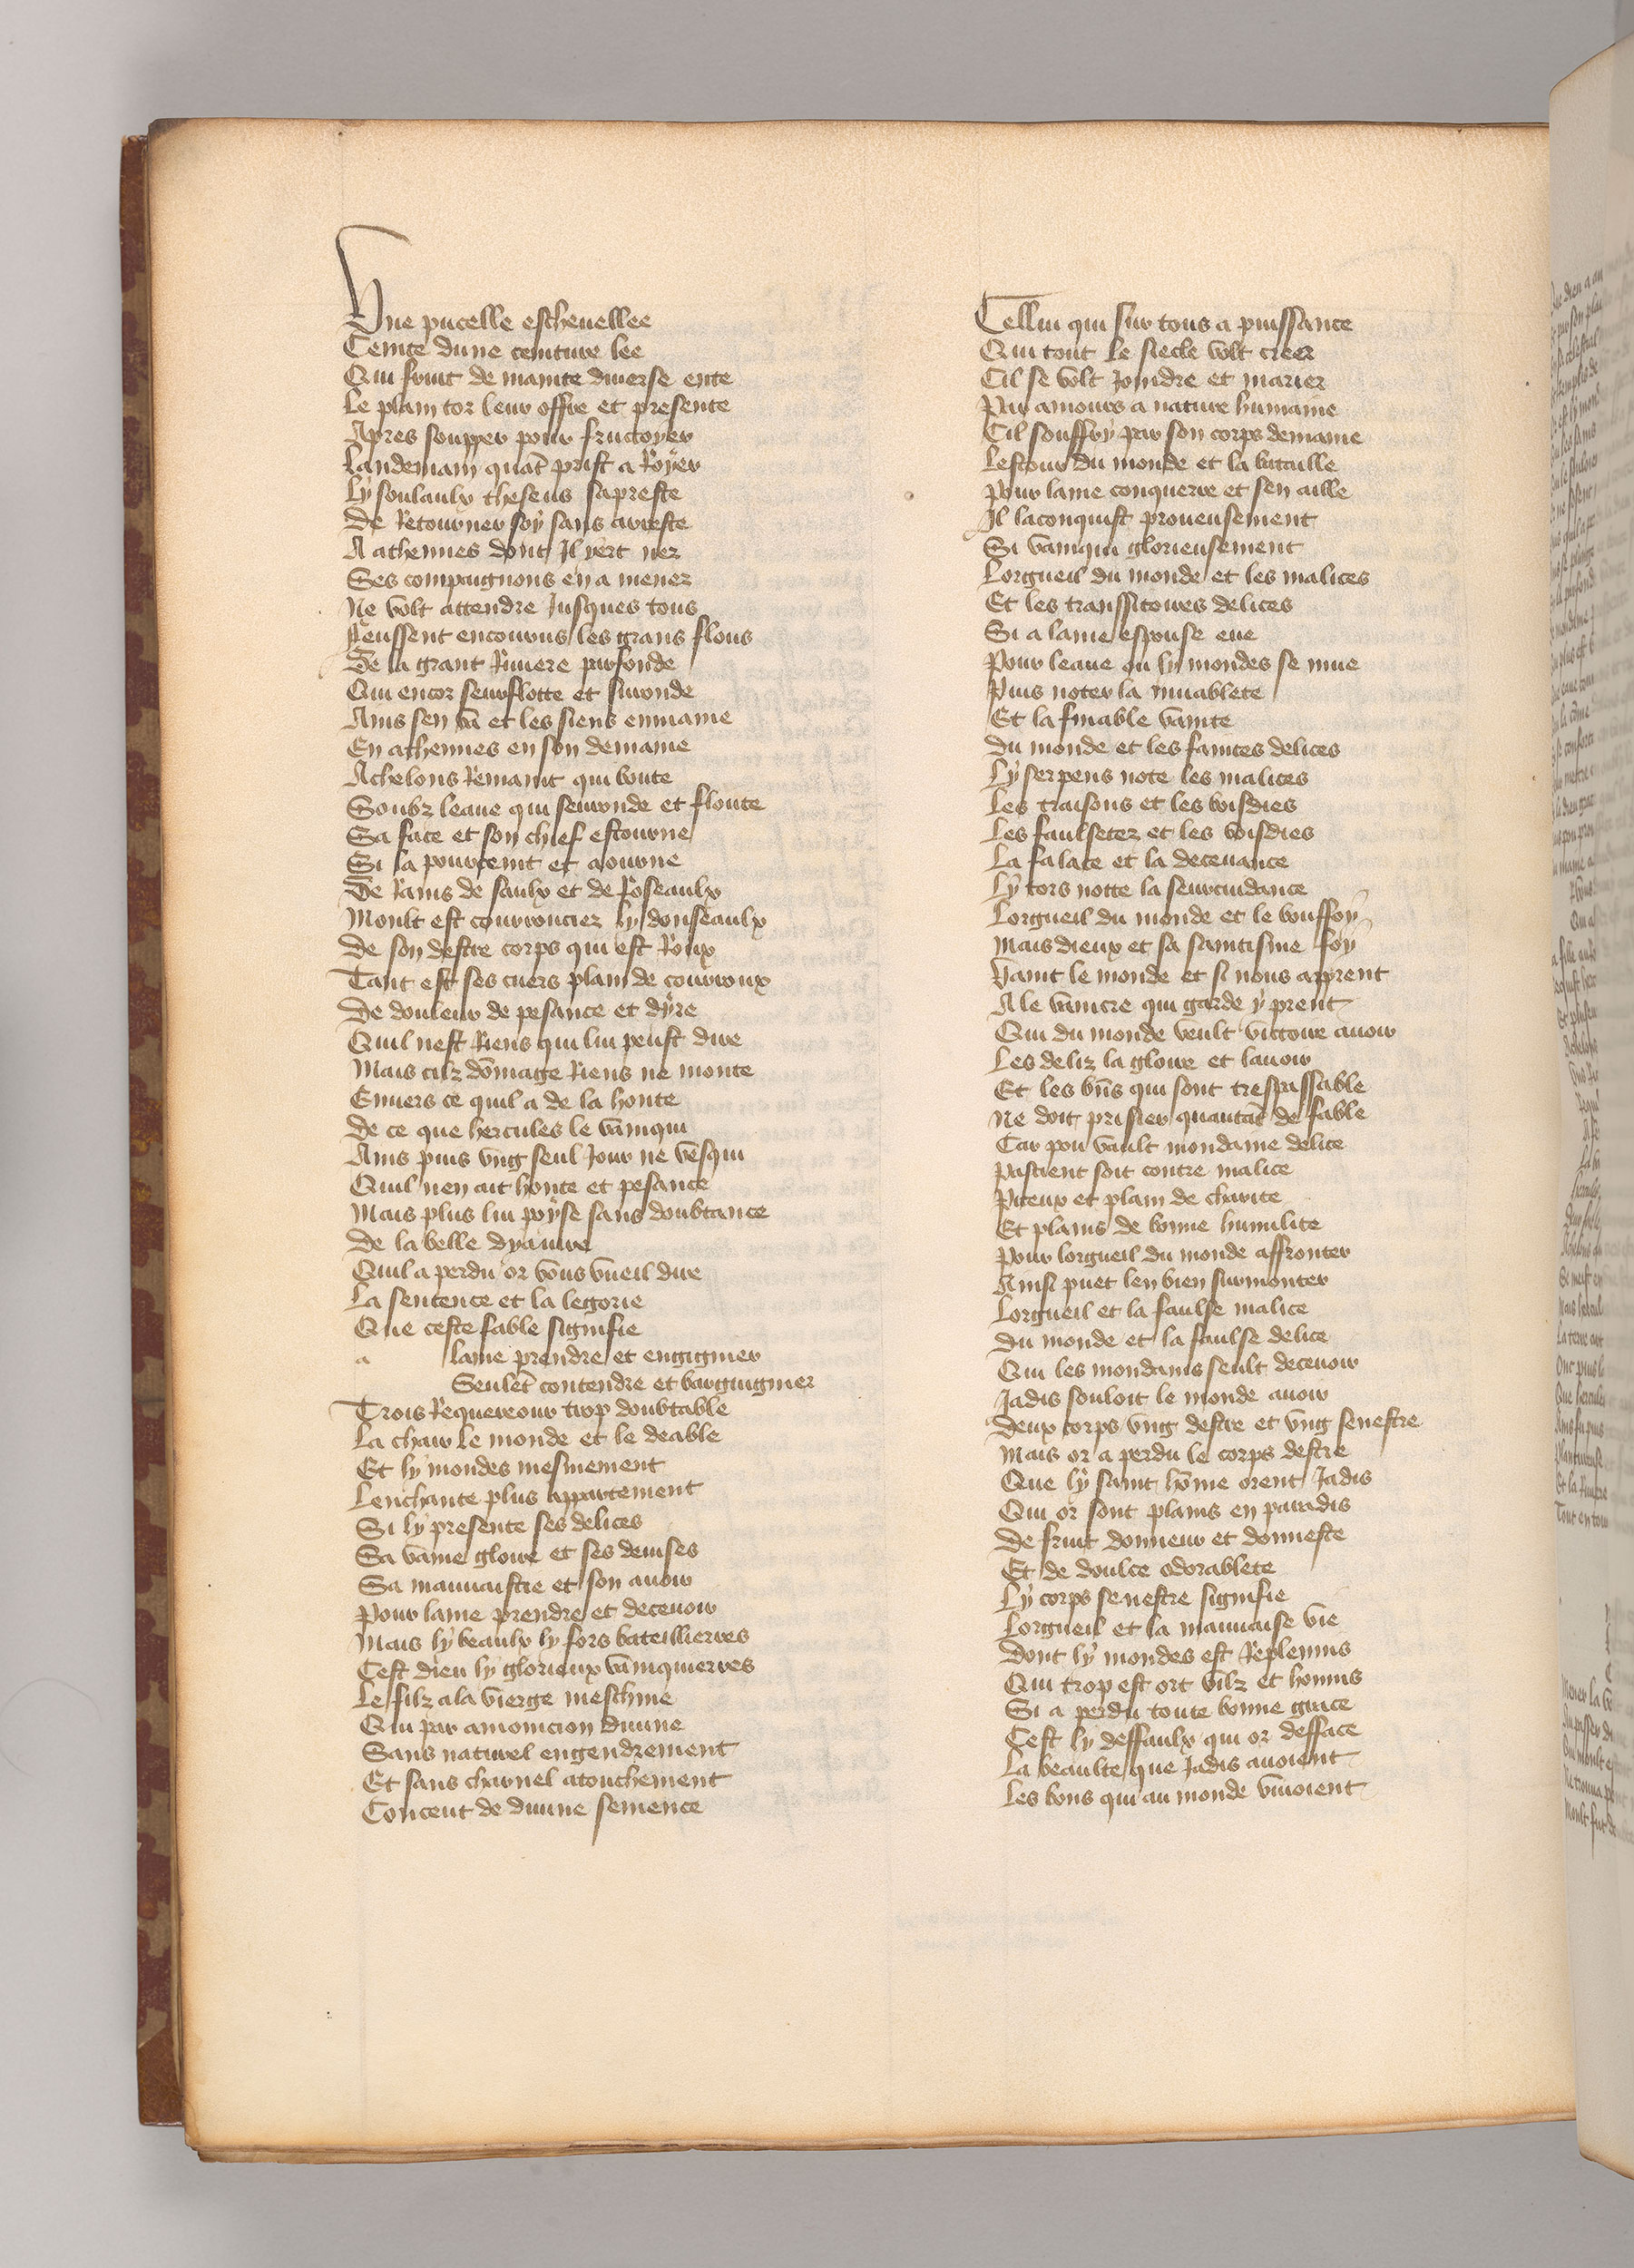 Vne pucelle escheuellee
Ceinte dune ceinture lee
Qui fruit de mainte diuerse ente
Le plain cor leur offre et presente
Apres soupper pour fructoyer
Landemain quāt prist a Royer
Ly soulaulx theseus sapreste
De Retourner soy sans arreste
A athennes dont Il yert nez
Ses compaignons en a menez
Ne volt attendre Jusques tous
Feussent encourus les grans flous
De la grant Riuiere parfonde
Qui encor seurflotte et suronde
Ains sen va et les siens enmaine
En athennes en son demaine
Achelous Remaint qui boute
Soubz leaue qui seuronde et floute
Sa face et son chief estourne
Si la pourceint et aourne
De Rains de saulx et de Roseaulx
Moult est courrouciez ly donseaulx
De son destre corps qui est Roux
Tant est ses cuers plain de courroux
De douleur de pesance et dyre
Quil nest Riens qui lui peust dire
Mais cilz dōmage Riens ne monte
Enuers ce quil a de la honte
De ce que hercules le vainqui
Ains puis vng seul Jour ne vesqui
Quil nen ait honte et pesance
Mais plus lui poyse sans doubtance
De la belle dyanire
Quil a perdu or vous vueil dire
La sentence et la legorie
Que ceste fable signifie
a lame prendre et engignier
Seulēt contendre et barguignier
Trois Requereour trop doubtable
La chair le monde et le deable
Et ly mondes mesmement
Lenchante plus appartement
Si ly presente ses delices
Sa vaine gloire et ses deuises
Sa mauuaistie et son auoir
Pour lame prendre et deceuoir
Mais ly beaulx ly fors bateillierres
Cest dieu ly glorieux vainquierres
Le filz a la vierge meschine
Qui par amonicion diuine
Sans naturel engendrement
Et sans charnel atouchement
Conceut de diuine semence
Cellui qui sur tous a puissance
Qui tout le siecle volt creer
Cil se volt Joindre et marier
Par amours a nature humaine
Cil souffry par son corps demaine
Lestour du monde et la bataille
Pour lame conquerre et sen aille
Il laconquist proueusement
Si vainqui glorieusement
Lorgueil du monde et les malices
Et les transitoires delices
Si a lame espouse eue
Pour leaue ou ly mondes se mue
Puis noter la muablete
Et la finable vainte
Du monde et les faintes delices
Ly serpens note les malices
Les traisons et les boisdies
Les faulsetez et les voisdies
La falace et la deceuance
Ly tors notte la seurcuidance
Lorgueil du monde et le bouffoy
Mais dieux et sa saintisme foy
Vaint le monde et si nous apprent
A le vaincre qui garde y prent
Qui du monde veult victoire auoir
Les deliz la gloire et lauoir
Et les bn̄s qui sont trespassable
Ne doit prisier quautāt de fable
Car pou vault mondaine delice
Pascient soit contre malice
Piteux et plain de charite
Et plains de bonne humilite
Pour lorgueil du monde affronter
Ainsi puet len bien surmonter
Lorgueil et la faulse malice
Du monde et la faulse delice
Qui les mondains seult deceuoir
Jadis souloit le monde auoir
Deux corps vng destre et vng senestre
Mais or a perdu le corps destre
Que ly saint hōme orent Jadis
Qui or sont plains en paradis
De fruit donneur et donneste
Et de doulce odorablete
Ly corps senestre signifie
Lorgueil et la mauuaise vie
Dont ly mondes est Replenis
Qui trop est ort vilz et honnis
Si a perdu toute bonne grace
Cest ly deffaulx qui or defface
La beaulte que Jadis auoient
Les bons qui au monde viuoient